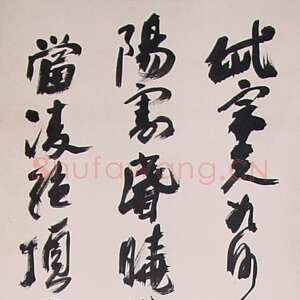 岱宗夫如何
陽割昏曉
當凌絕頂
ShufaWang.CN